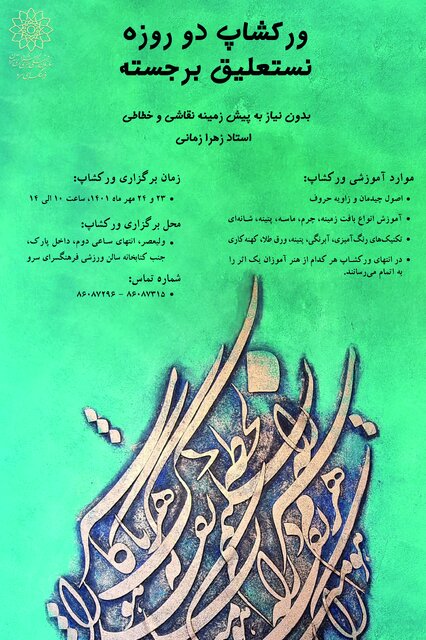 ورکشاپ دو روزه
نستعلیق برجسته
بدون نیاز به پیش زمینه نقاشی و خطاطی
استاد زهرا زمانی
موارد آموزشی ورکشاپ:
• اصول چیدمان و زاویه حروف
• آموزش انواع بافت زمینه، چرم، ماسه، پتینه، شانه‌ای
• تکنیک‌های رنگ‌آمیزی، آبرنگی، پتینه، ورق طلا، کهنه کاری
• در انتهای ورکشاپ هر کدام از هنر آموزان یک اثر را
به اتمام می‌رسانند.
زمان برگزاری ورکشاپ:
• ۲۳ و ۲۴ مهر ماه ۱۴۰۱، ساعت ۱۰ الی ۱۴
محل برگزاری ورکشاپ:
• ولیعصر، انتهای ساعی دوم، داخل پارک،
جنب کتابخانه سالن ورزشی فرهنگسرای سرو
شماره تماس:
• ۸۶۰۸۷۳۱۵ – ۸۶۰۸۷۲۹۶